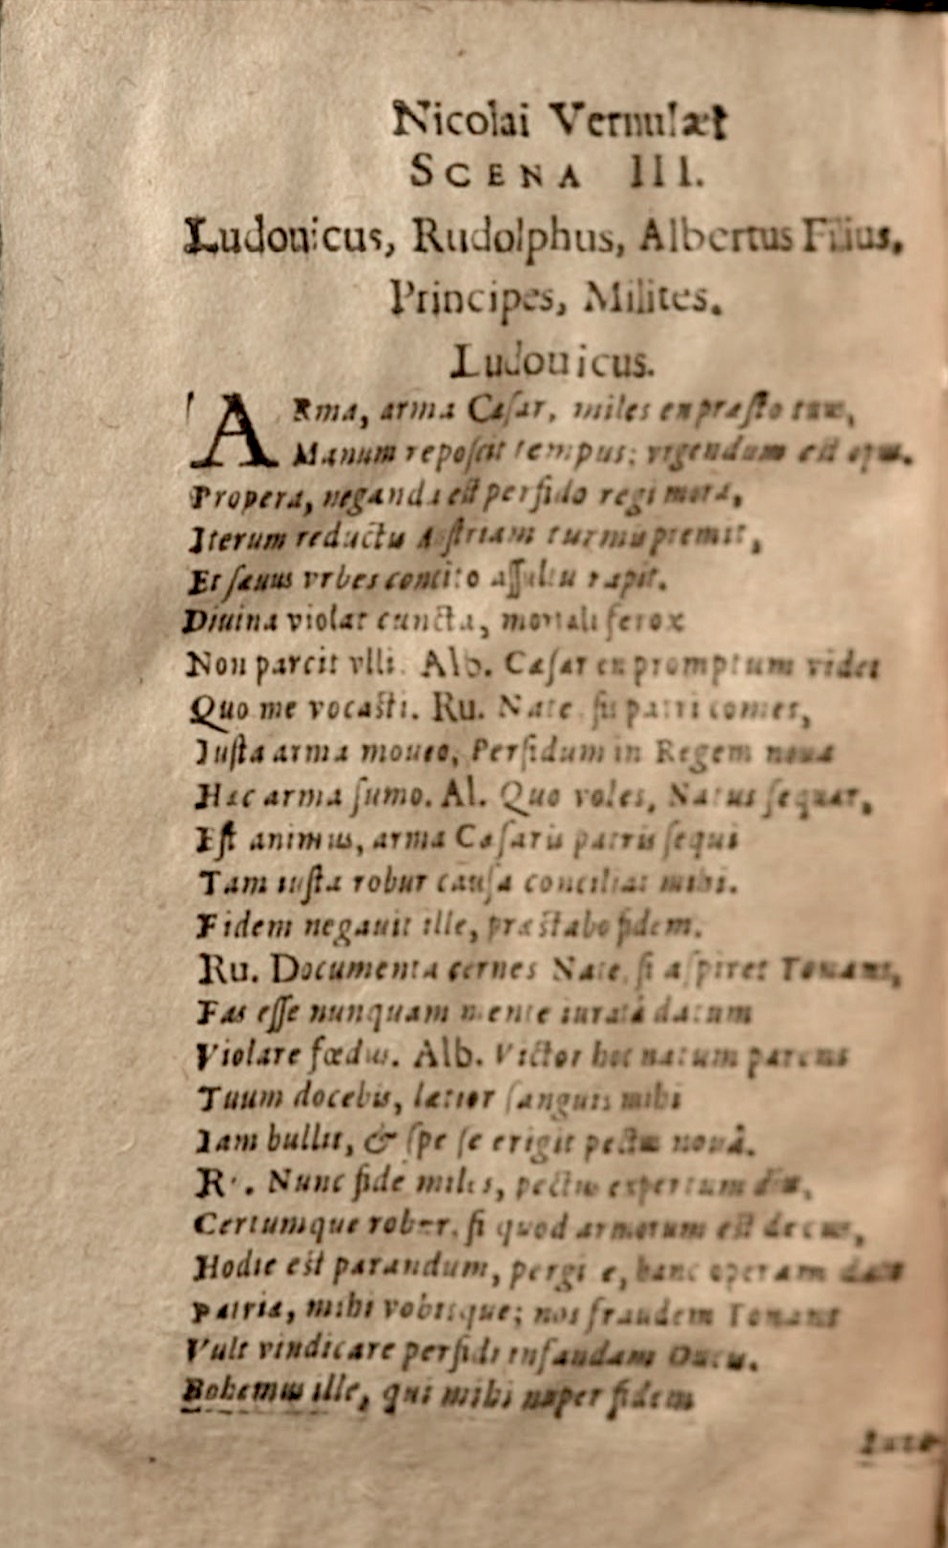 Nicolai Vernulæi
SCENA III.
Ludouicus, Rudolphus, Albertus Filius,
Principes, Milites.
Ludouicus.
ARma, arma Cæsar, miles en præsto tuus,
Manum reposcit tempus; vrgendum est opus.
Propera, neganda est perfido regi mora,
Iterum reductis Austriam turmis premit,
Et sæuus vrbes concito assultu rapit.
Diuina violat cuncta, mortali ferox
Non parcit vlli. Alb. Cæsar en promptum vides
Quo me vocasti. Ru. Nate sis patri comes,
Iusta arma moueo, Perfidum in Regem noua
Hæc arma sumo. Al. Quo voles, Natus sequar,
Est animus, arma Cæsaris patris sequi
Tam iusta robur causa conciliat mihi.
Fidem negauit ille, præstabo fidem.
Ru. Documenta cernes Nate, si aspiret Tonans,
Fas esse nunquam mente iuratâ datum
Violare fœdus. Alb. Victor hoc natum parens
Tuum docebis, lætior sanguis mihi
Iam bullit, & spe se erigit pectus nouâ.
R. Nunc fide miles, pectus expertum diu,
Certumque robur, si quod armorum est decus,
Hodie est parandum, pergite, hanc operam date
Patriæ, mihi vobisque; nos fraudem Tonans
Vult vindicare perfidi infandam Ducis.
Bohemus ille, qui mihi nuper fidem